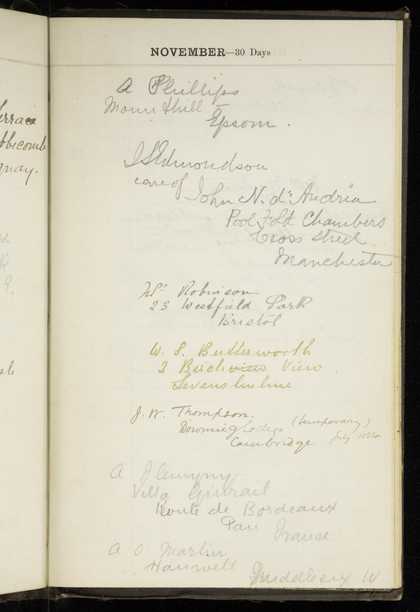 erraca
bbicomb
quay.
NOVEMBER—30 Days
A Phillips
Mount Hill
Epsom.
J S Edmondson
care of
John N. d'Andria
Pool Fold Chambers
Cross Street
Manchester
Robinson
23 Westfield Park
Bristol
W. S. Butterworth
3 View
J. W. Thompson.
Downing Lodge (temporary)
Cambridge July
A
Villa
Route de Bordeaux
Pau
France
A O Martin
Hanwell
Middlesex W